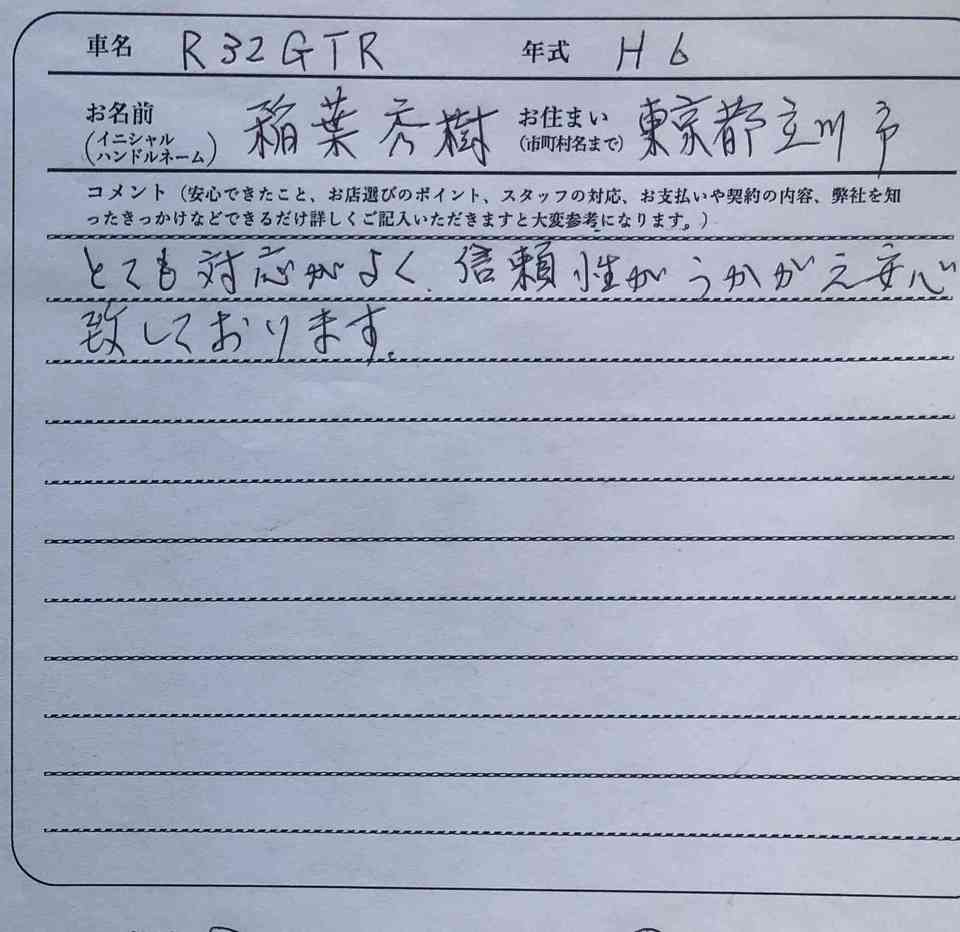 車名 R32GTR 年式 H6
お名前 (イニシャル ハンドルネーム) 稲葉秀樹 お住まい (市町村名まで) 東京都立川市
コメント（安心できたこと、お店選びのポイント、スタッフの対応、お支払いや契約の内容、弊社を知
ったきっかけなどできるだけ詳しくご記入いただきますと大変参考になります。）
とても対応がよく、信頼性がうかがえ安心
致しております。